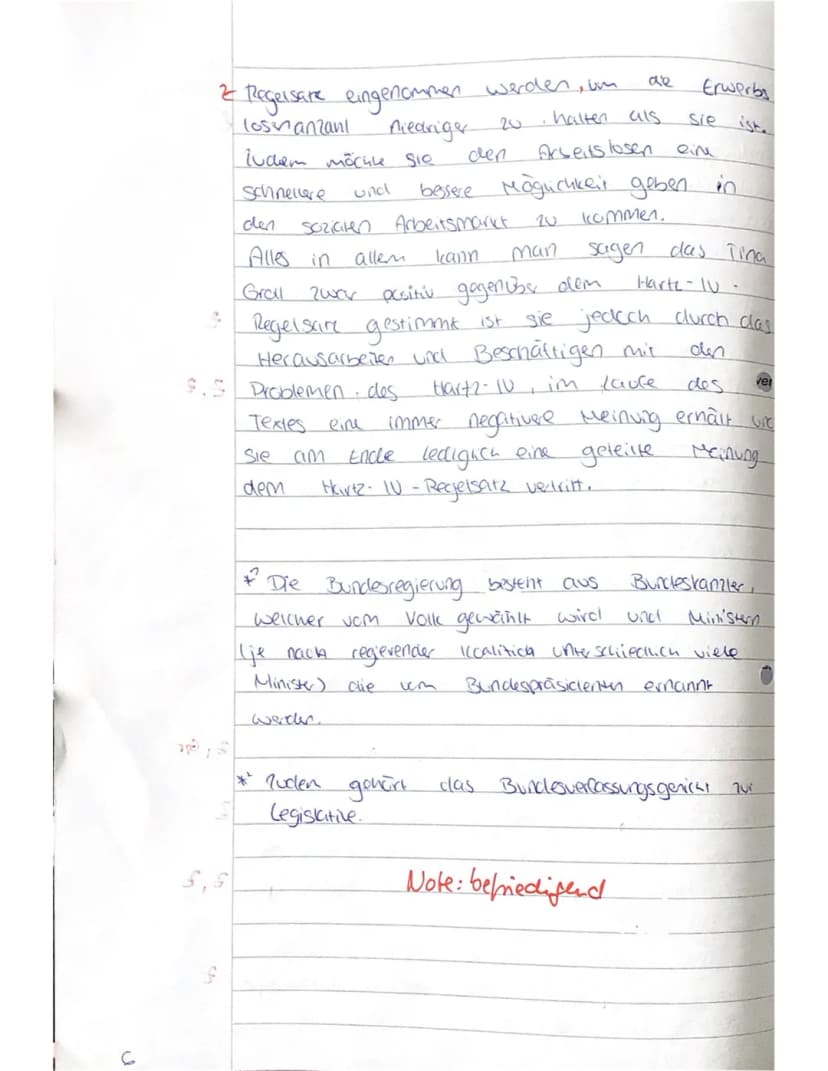 Z Regelsatz eingenommen werden, um die Erwerbs
losenanzahl niedriger zu halten als sie ist.
Zudem möchte sie den Arbeitslosen eine
schnellere und bessere Möglichkeit geben in
den sozialen Arbeitsmarkt zu kommen.
Alles in allem kann man sagen das Tina
Groll zwar positiv gegenüber dem Hartz-IV-
Regelsatz gestimmt ist sie jedoch durch das
Herausarbeiten und Beschäftigen mit den
Problemen des Hartz-IV, im laufe des
Textes eine immer negativere Meinung erhält und
sie am Ende lediglich eine geteilte Meinung
dem Hartz-IV-Regelsatz vertritt.
Die Bundesregierung besteht aus Bundeskanzler,
welcher vom Volk gewählt wird und Ministern
(je nach regierender Koalition unterschiedlich viele
Minister) die vom Bundespräsidenten ernannt
werden.
*² Zudem gehört das Bundesverfassungsgericht zur
Legislative.
Note: befriedigend